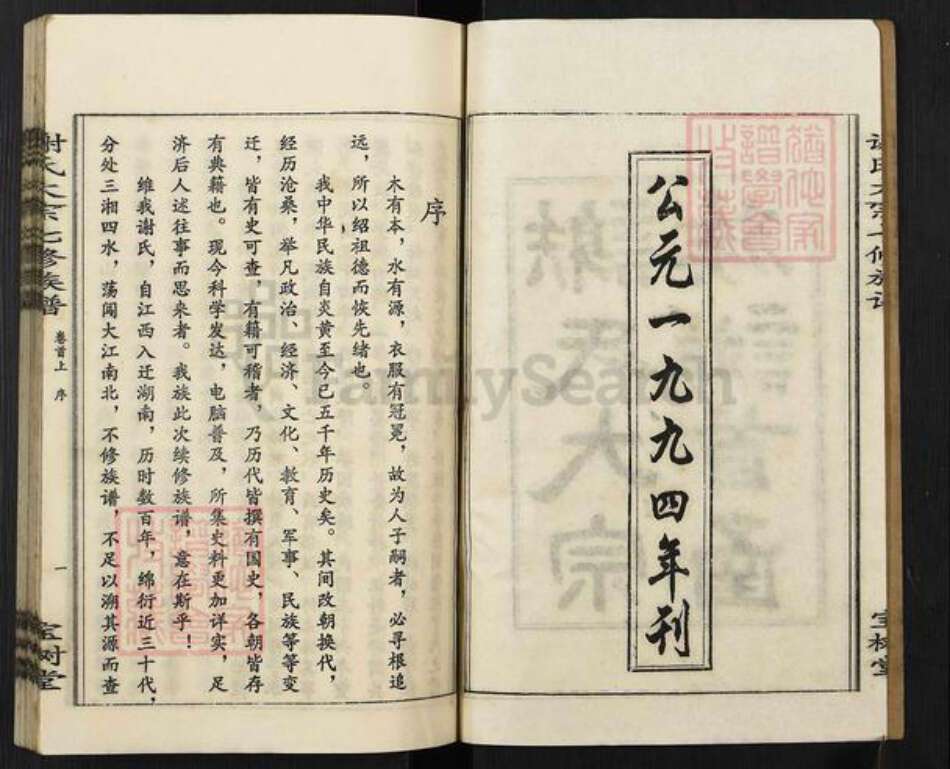 谢氏大宗七修族谱
宝树堂
公元一九九四年刊
序
木有本，水有源，衣服有冠冕，故为人子嗣者，必寻根追
远，所以绍祖德而恢先绪也。
我中华民族自炎黄至今已五千年历史矣。其间改朝换代，
经历沧桑，举凡政治、经济、文化、教育、军事、民族等等变
迁，皆有史可查，有籍可稽者，乃历代皆撰有国史，各朝皆存
有典籍也。现今科学发达，电脑普及，所集史料更加详实，足
济后人述往事而思来者。我族此次续修族谱，意在斯乎！
维我谢氏，自江西入迁湖南，历时数百年，绵衍近三十代，
分处三湘四水，荡闯大江南北，不修族谱，不足以溯其源而查
谢氏大宗七修族谱
卷首上 序
一
宝树堂
FamilySearch